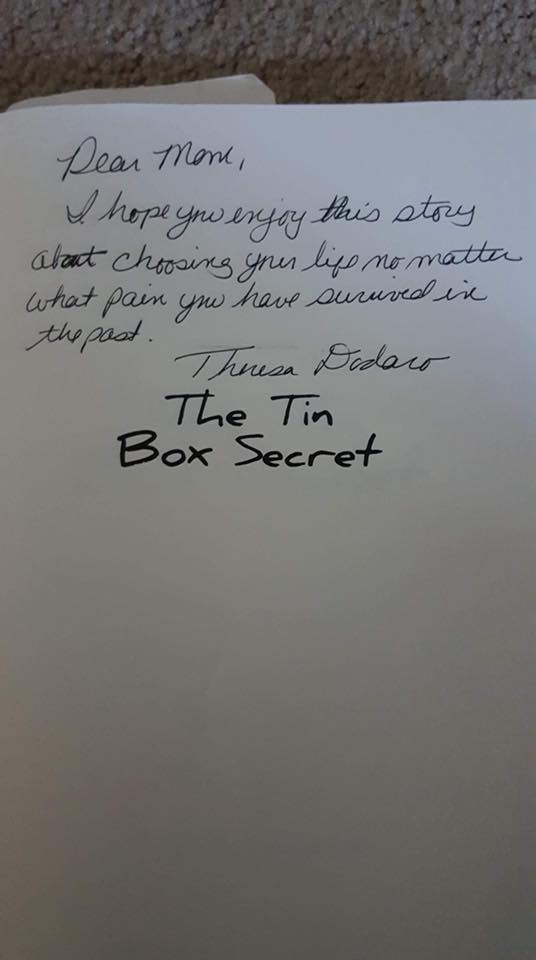 Dear Mom,
I hope you enjoy this story
about choosing your life no matter
what pain you have survived in
the past.
Theresa Dodaro
The Tin
Box Secret